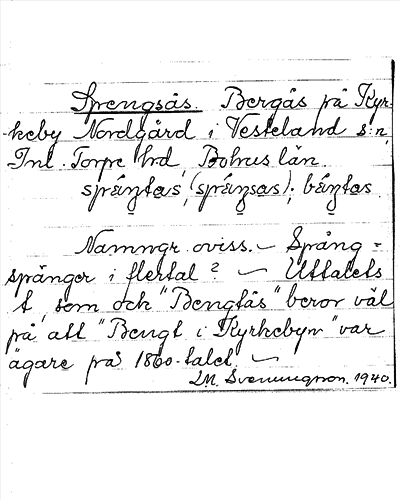 Sprengsås. Bergås på Kyr-
keby Nordgård i Vesteland s:n,
Inl. Torpe hrd, Bohus län.
spräŋtas, (spräŋsas); bäŋtas.
Namngr. oviss. – Spång =
spänger i flertal? – Uttalets
t, som och "Bengtås" beror väl
på att "Bengt i Kyrkebyn" var
ägare på 1860-talet. –
LM. Svenungsson. 1940.